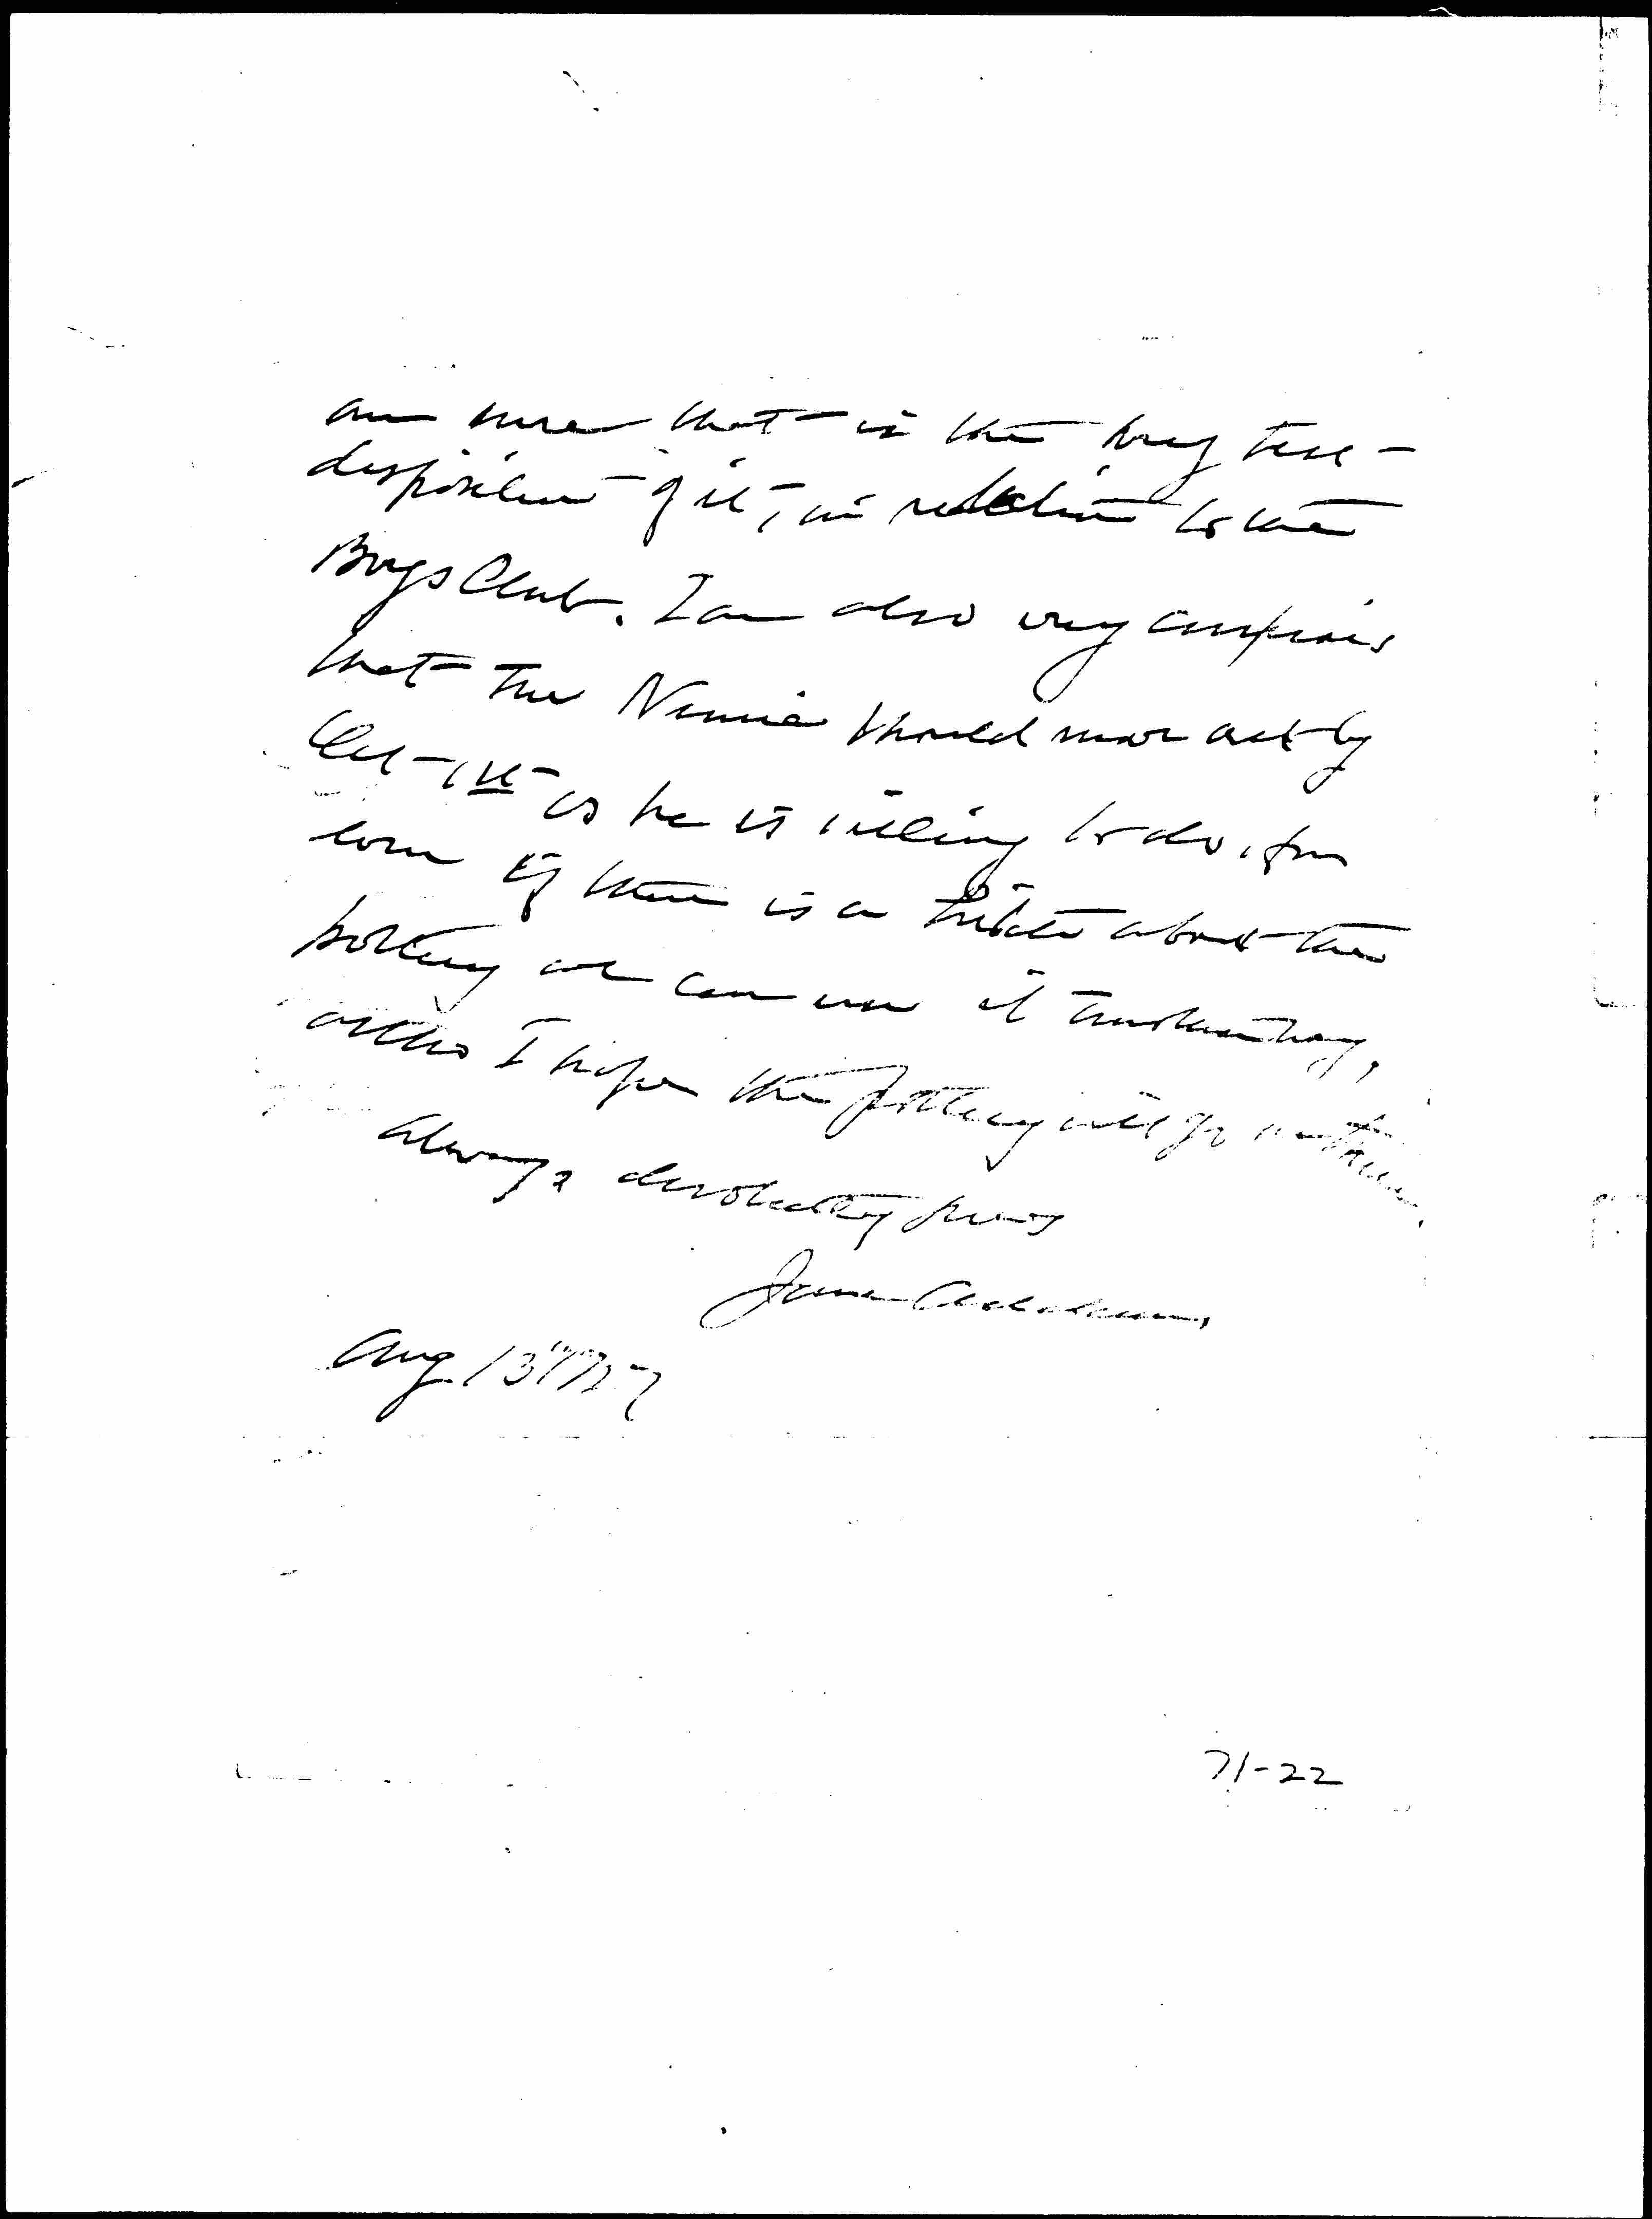 am sure that is the very best
disposition of it, in relation to the
Boys Club. I am also very anxious
that Mr Nennie should move out by
Oct - 1st as he is willing to do, for
even if there is a hitch about the
pottery we can use it
altho I hope the pottery will go
Always devotedly yours
Jane Addams,
Aug 13" 1927
71-22